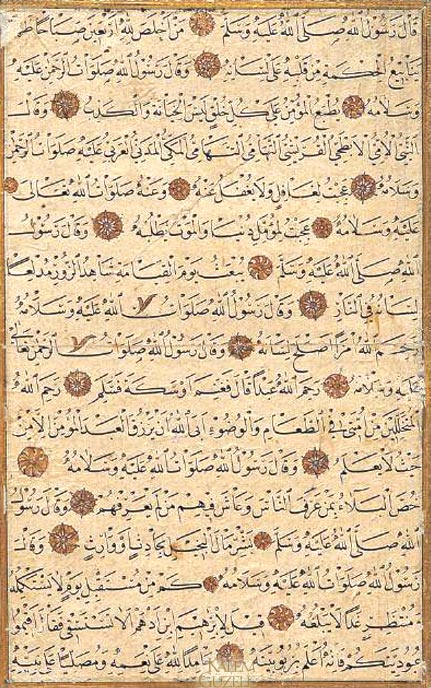 قال رسول الله صلى الله عليه وسلم من أخلص لله أربعين صباحا ظهر
ينابيع الحكمة من قلبه على لسانه وقال رسول الله صلوات الرحمن عليه
وسلامه يطبع المؤمن على كل خلق ليس الخيانة والكذب وقال
النبي الأمي القرشي التهامي المكي المدني العربي عليه صلوات الرحمن
وسلامه عجبت لغافل ولا يغفل عنه وعنه صلوات الله تعالى
عليه وسلامه عجبت لمؤمل دنيا والموت يطلبه وقال رسول
الله صلى الله عليه وسلم يبعث يوم القيامة شاهد الزور مدلعا
لسانه في النار وقال رسول الله صلوات الله عليه وسلامه
رحم الله امرأ أصلح لسانه وقال رسول الله صلوات الرحمن تعالى
عليه وسلامه رحم الله عبدا قال فغنم أو سكت فسلم رحم الله
المتخللين من أمتي في الطعام والوضوء أبى الله أن يرزق العبد المؤمن إلا من
حيث لا يعلم وقال رسول الله صلوات الله عليه وسلامه
خص البلاء بمن عرف الناس وعاش فيهم من لم يعرفهم وقال رسول
الله صلى الله عليه وسلم بشر مال البخيل بحادث أو وارث وقال
رسول الله صلوات الله عليه وسلامه كم من مستقبل يوم لا يستكمله
منتظر غدا لا يبلغه قيل لإبراهيم بن أدهم ألا تستسقي فقال
الله على نعمه
KALEM GÜZELİ